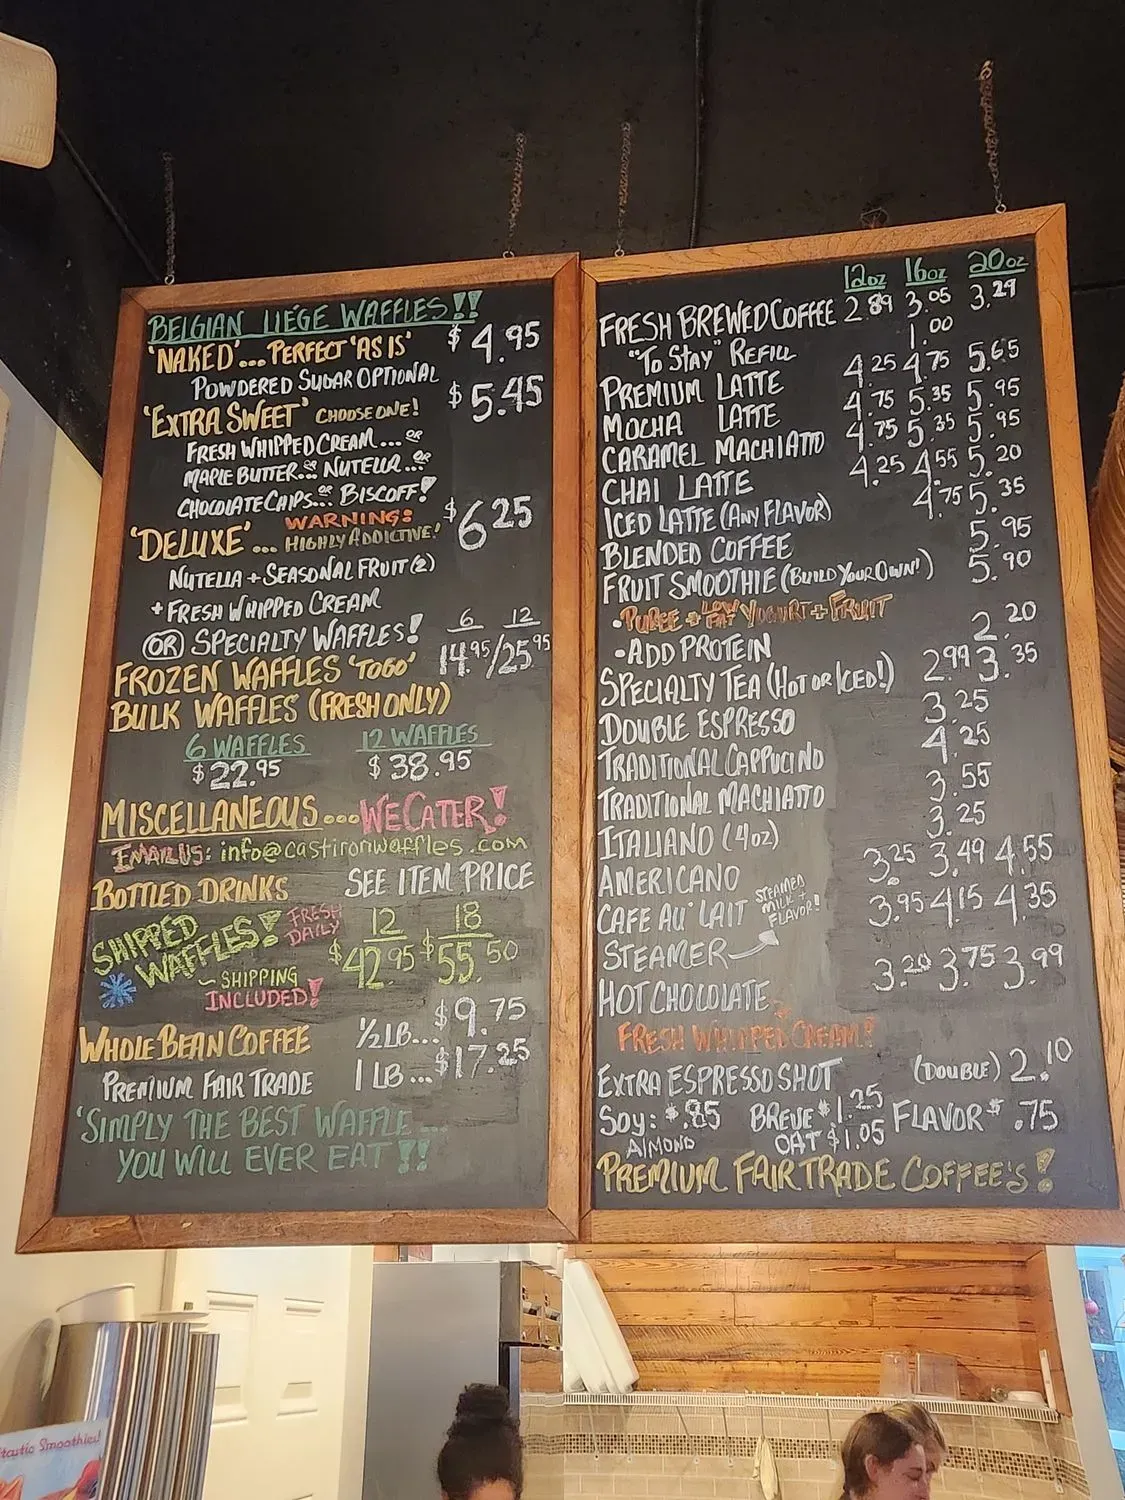 BELGIAN LIÉGE WAFFLES!!
'NAKED'... PERFECT 'AS IS' $4.95
POWDERED SUGAR OPTIONAL
'EXTRA SWEET' CHOOSE ONE! $5.45
FRESH WHIPPED CREAM... OR
MAPLE BUTTER... OR NUTELLA... OR
CHOCOLATE CHIPS... OR BISCOFF!
'DELUXE'... WARNING: HIGHLY ADDICTIVE! $6.25
NUTELLA + SEASONAL FRUIT (2)
+ FRESH WHIPPED CREAM
(OR) SPECIALTY WAFFLES! 6 12
FROZEN WAFFLES 'TO GO' 14.95/25.95
BULK WAFFLES (FRESH ONLY)
6 WAFFLES 12 WAFFLES
$22.95 $38.95
MISCELLANEOUS... WE CATER!
EMAIL US: info@castironwaffles.com
BOTTLED DRINKS SEE ITEM PRICE
SHIPPED WAFFLES! FRESH DAILY 12 18
$42.95 $55.50
~ SHIPPING
INCLUDED!
WHOLE BEAN COFFEE ½ LB... $9.75
PREMIUM FAIR TRADE 1 LB... $17.25
'SIMPLY THE BEST WAFFLE...
YOU WILL EVER EAT'!!
12oz 16oz 20oz
FRESH BREWED COFFEE 2.89 3.05 3.29
"TO STAY" REFILL 1.00
PREMIUM LATTE 4.25 4.75 5.65
MOCHA LATTE 4.75 5.35 5.95
CARAMEL MACHIATTO 4.75 5.35 5.95
CHAI LATTE 4.25 4.55 5.20
ICED LATTE (ANY FLAVOR) 4.75 5.35
BLENDED COFFEE 5.95
FRUIT SMOOTHIE (BUILD YOUR OWN!) 5.90
• PUREE + LOW FAT YOGURT + FRUIT
• ADD PROTEIN 2.20
SPECIALTY TEA (HOT OR ICED!) 2.99 3.35
DOUBLE ESPRESSO 3.25
TRADITIONAL CAPPUCINO 4.25
TRADITIONAL MACHIATTO 3.55
ITALIANO (4oz) 3.25
AMERICANO 3.25 3.49 4.55
CAFE AU' LAIT 3.95 4.15 4.35
STEAMER STEAMED MILK + FLAVOR!
HOT CHOCOLATE 3.20 3.75 3.99
FRESH WHIPPED CREAM!
EXTRA ESPRESSO SHOT (DOUBLE) 2.10
SOY: $.85 BREVE $1.25 FLAVOR $.75
ALMOND OAT $1.05
PREMIUM FAIR TRADE COFFEE'S!
tastic Smoothies!